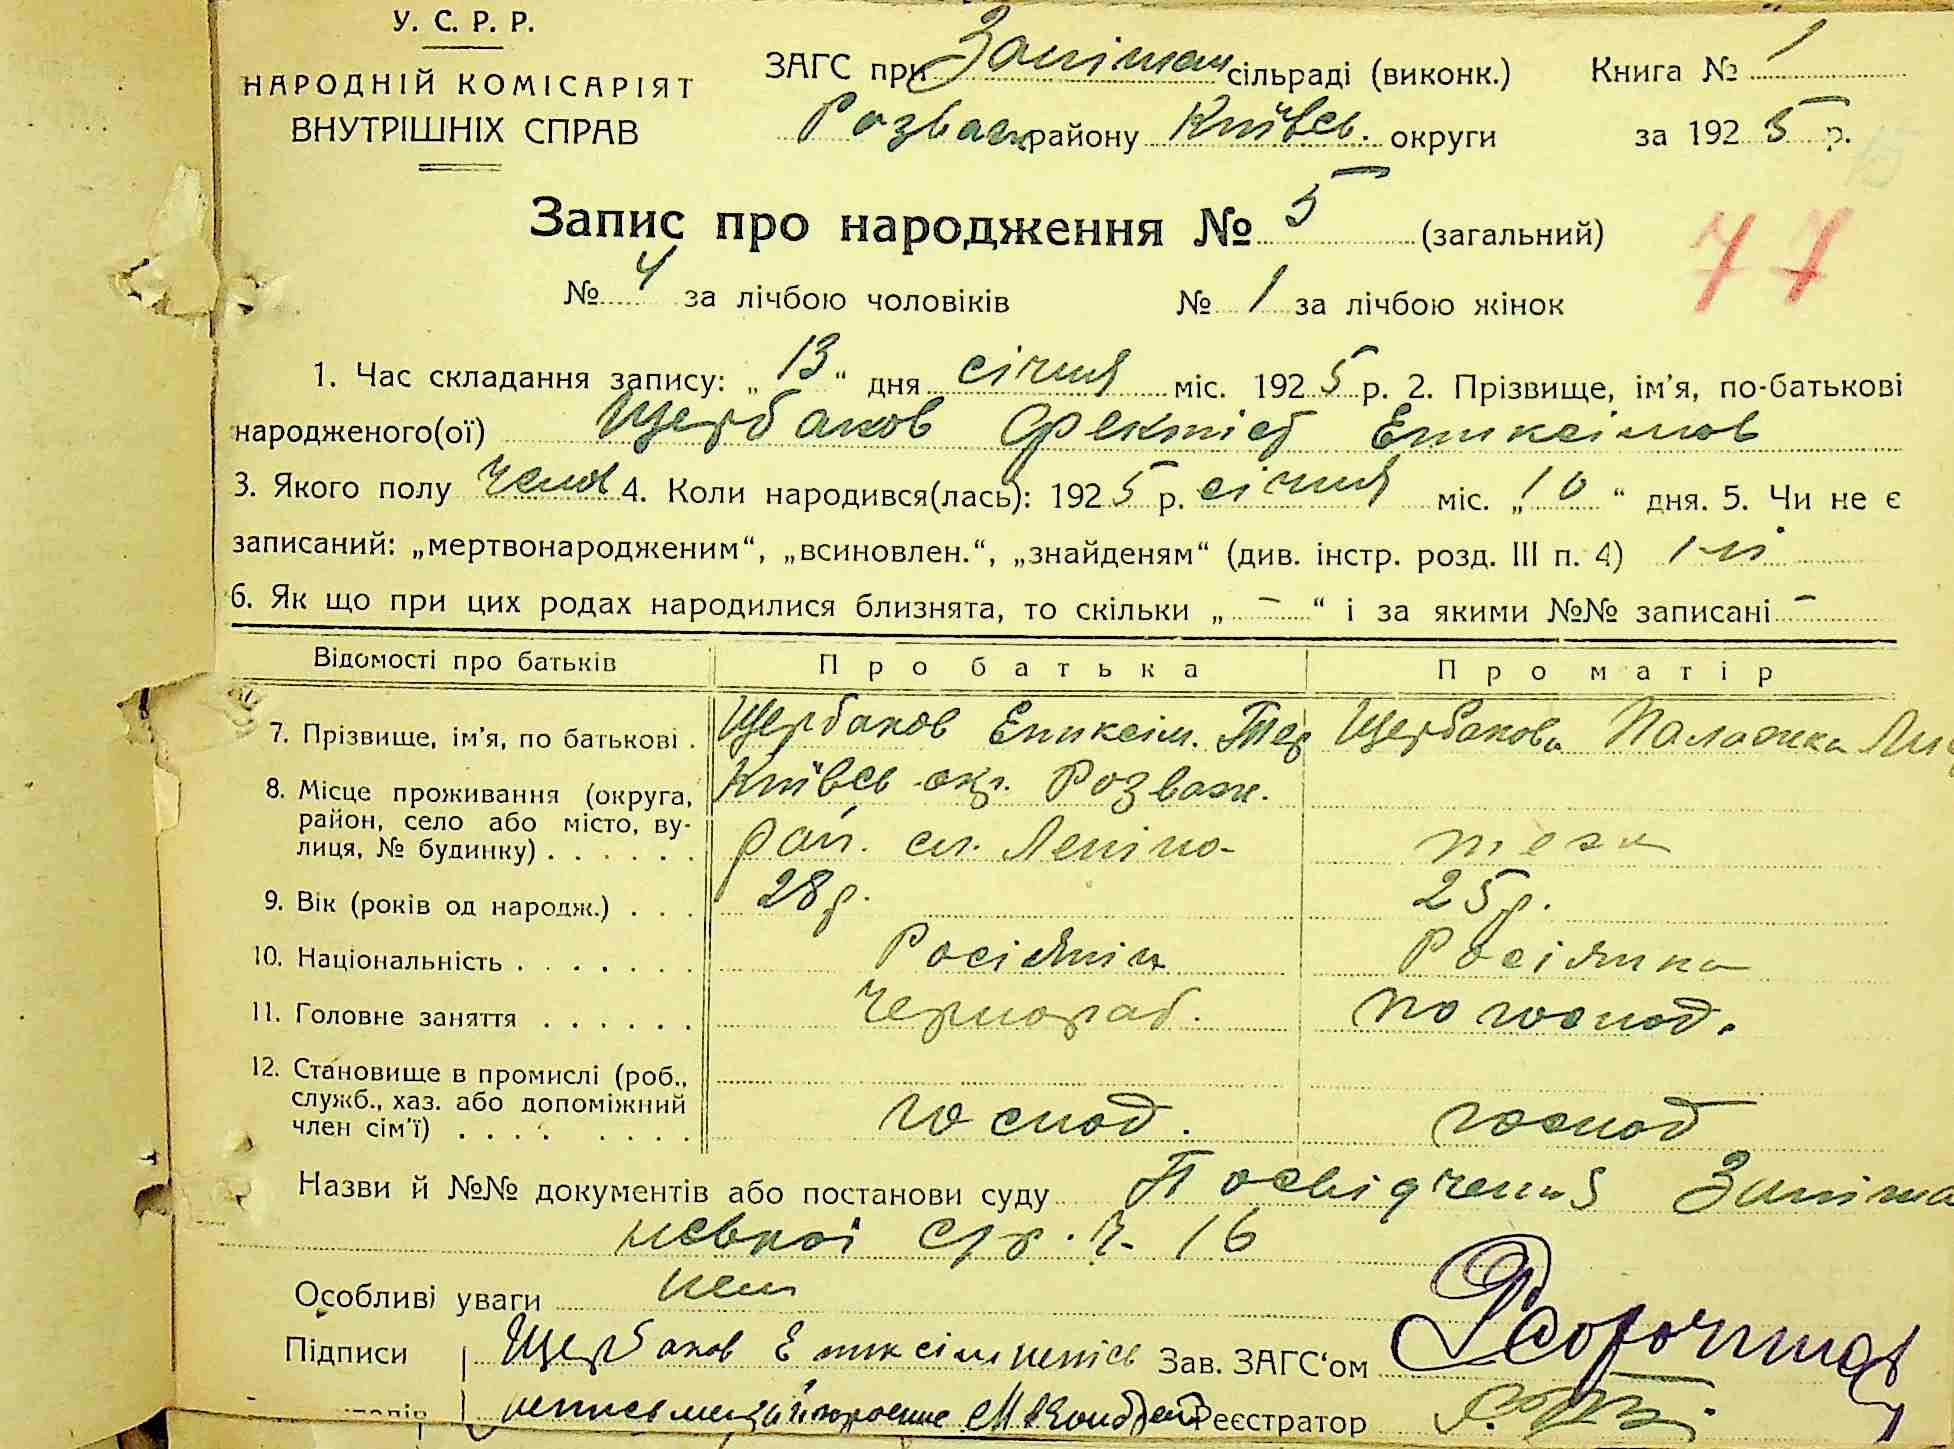 У. С. Р. Р.
НАРОДНІЙ КОМІСАРІЯТ
ВНУТРІШНІХ СПРАВ
ЗАГС при сільраді (виконк.) Книга № 1
Розваж району Київсь. округи за 1925 р.
Запис про народження № 5 (загальний)
77
№ 4 за лічбою чоловіків № 1 за лічбою жінок
1. Час складання запису: „13“ дня січня міс. 1925 р. 2. Прізвище, ім'я, по-батькові
народженого(ої) Щербаков
3. Якого полу чолов 4. Коли народився(лась): 1925 р. січня міс. „10“ дня. 5. Чи не є
записаний: „мертвонародженим“, „всиновлен.“, „знайденям“ (див. інстр. розд. III п. 4) ні
6. Як що при цих родах народилися близнята, то скільки „ – “ і за якими №№ записані –
Відомості про батьків Про батька Про матір
7. Прізвище, ім'я, по батькові . Щербаков Щербакова Палажка
8. Місце проживання (округа, Київсь окр. Розваж.
район, село або місто, ву-
лиця, № будинку) . . . . . . рай. сл. Леніна теж
9. Вік (років од народж.) . . . 28 р. 25 р.
10. Національність . . . . . . . Росіянін Росіянка
11. Головне заняття . . . . . . Чернораб. по господ.
12. Становище в промислі (роб.,
служб., хаз. або допоміжний
член сім'ї) . . . . . . . . господ. господ
Назви й №№ документів або постанови суду Посвідчення
ч. 16
Особливі уваги нема
Підписи Щербаков Зав. ЗАГС'ом
Реєстратор